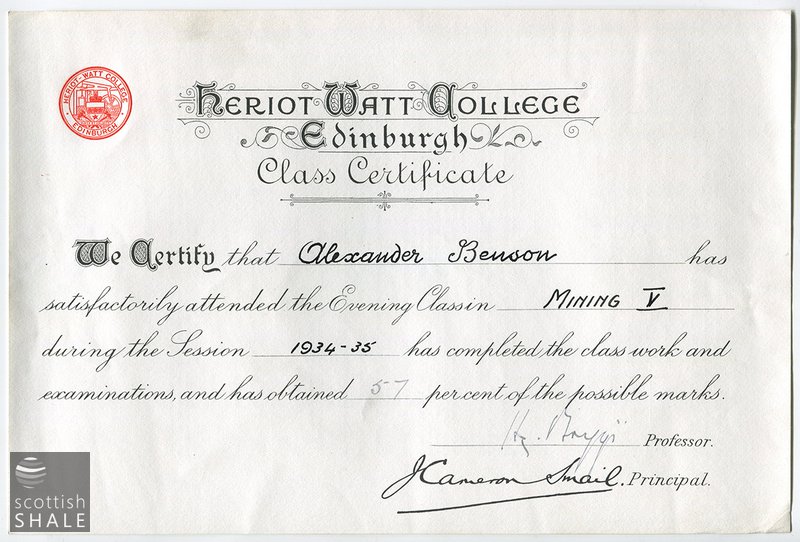 HERIOT-WATT COLLEGE
EDINBURGH
HERIOT WATT COLLEGE
Edinburgh
Class Certificate
We Certify that Alexander Benson has
satisfactorily attended the Evening Class in MINING V
during the Session 1934-35 has completed the class work and
examinations, and has obtained 57 per cent of the possible marks.
Professor.
J Cameron Smail. Principal.
scottish
SHALE